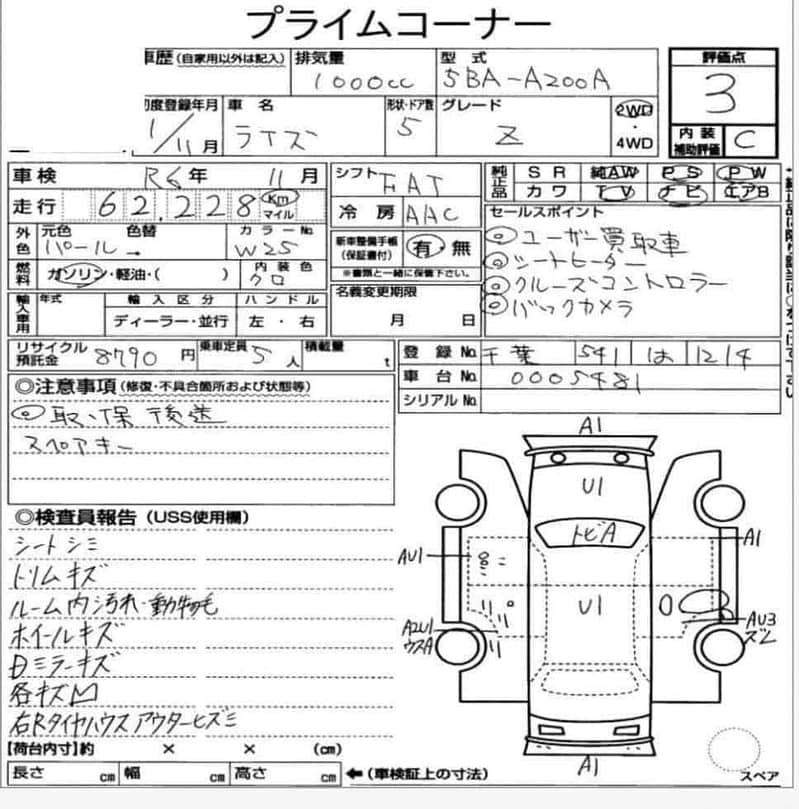 プライムコーナー
車歴 (自家用以外は記入) 排気量 1000cc 型式 5BA-A200A 評価点 3
初度登録年月 1/11月 車名 ライズ 形状・ドア数 5 グレード Z 2WD・4WD 内装補助評価 C
車検 R6年 11月 シフト FAT 純正品 SR 純AW PS PW
カワ TV ナビ エアB
走行 62,228 Km マイル 冷房 AAC
外色 元色 パール 色替 カラーNo. W25 新車整備手帳(保証書付) 有・無 ※書類と一緒に保管下さい。
セールスポイント
◎ユーザー買取車
◎シートヒーター
◎クルーズコントロラー
◎バックカメラ
燃料 ガソリン・軽油・( ) 内装色 クロ
輸入車用 年式 輸入区分 ディーラー・並行 ハンドル 左・右 名義変更期限 月 日
リサイクル預託金 8790円 乗車定員 5人 積載量 t 登録No. 千葉 541 は 1214
車台No. 0005481
シリアルNo.
◎注意事項 (修復・不具合箇所および状態等)
◎取、保 後送
スペアキー
◎検査員報告 (USS使用欄)
シートシミ
トリムキズ
ルーム内汚れ・動物毛
ホイールキズ
ミラーキズ
各キズ凹
右Rタイヤハウスアウターヒズミ
A1
U1
トビA
AU1
A1
U1
A2U1
ウスA
AU3
ズレ
A1
スペア
【荷台内寸】約 × × (cm)
長さ cm 幅 cm 高さ cm ←(車検証上の寸法)